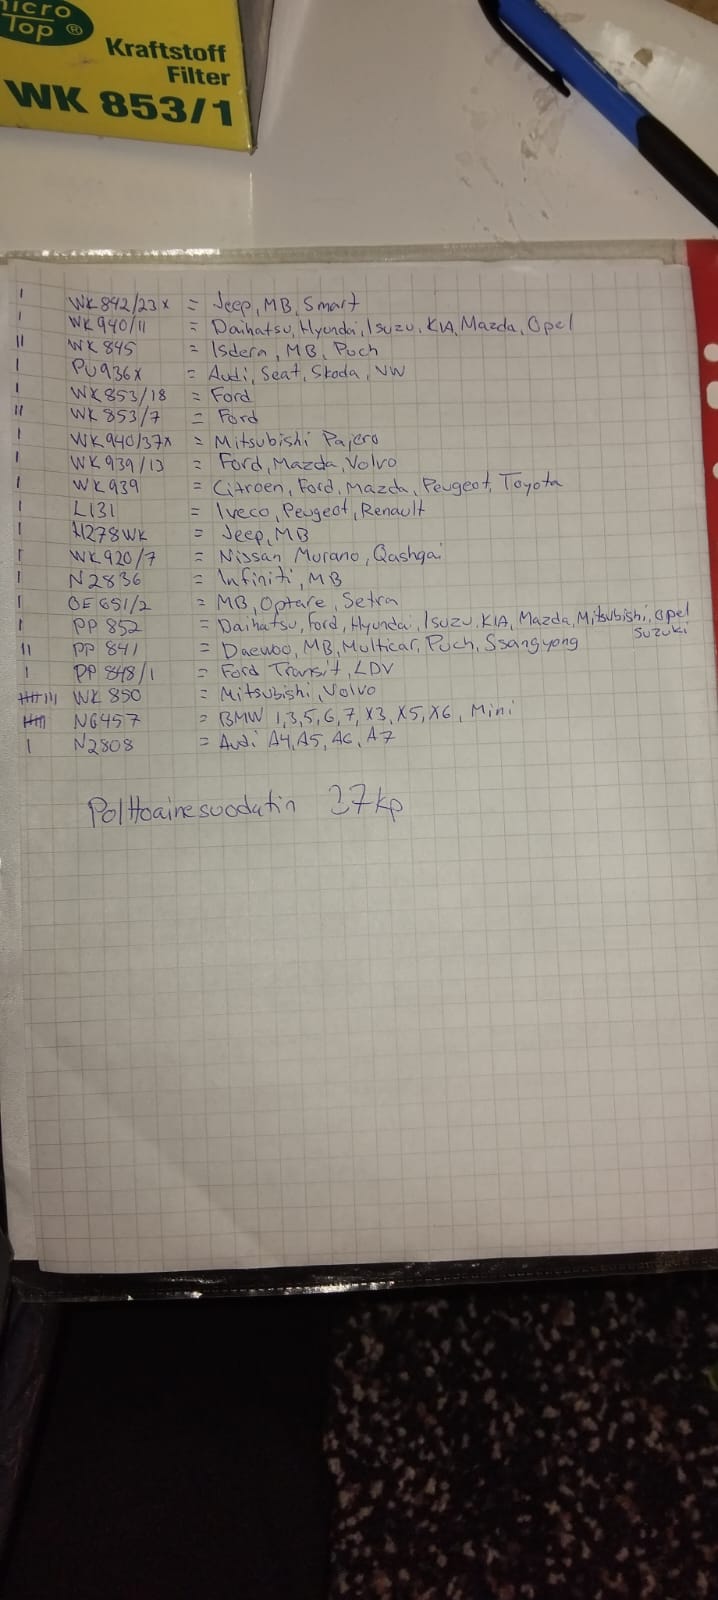 micro
Top ®
Kraftstoff
Filter
WK 853/1
I WK842/23x = Jeep, MB, Smart
I WK940/11 = Daihatsu, Hyundai, Isuzu, KIA, Mazda, Opel
II WK 845 = Isdera, MB, Puch
I PU936x = Audi, Seat, Skoda, VW
I WK853/18 = Ford
II WK 853/7 = Ford
I WK940/37x = Mitsubishi Pajero
I WK939/13 = Ford, Mazda, Volvo
I WK939 = Citroen, Ford, Mazda, Peugeot, Toyota
I L131 = Iveco, Peugeot, Renault
I H278WK = Jeep, MB
I WK920/7 = Nissan Murano, Qashqai
I N2836 = Infiniti, MB
I OE651/2 = MB, Optare, Setra
I PP 852 = Daihatsu, Ford, Hyundai, Isuzu, KIA, Mazda, Mitsubishi, Opel
Suzuki
II PP 841 = Daewoo, MB, Multicar, Puch, Ssangyong
I PP 848/1 = Ford Transit, LDV
IIII III WK 850 = Mitsubishi, Volvo
IIII N6457 = BMW 1,3,5,6,7, X3, X5, X6, Mini
I N2808 = Audi A4, A5, A6, A7
Polttoainesuodatin 27kp